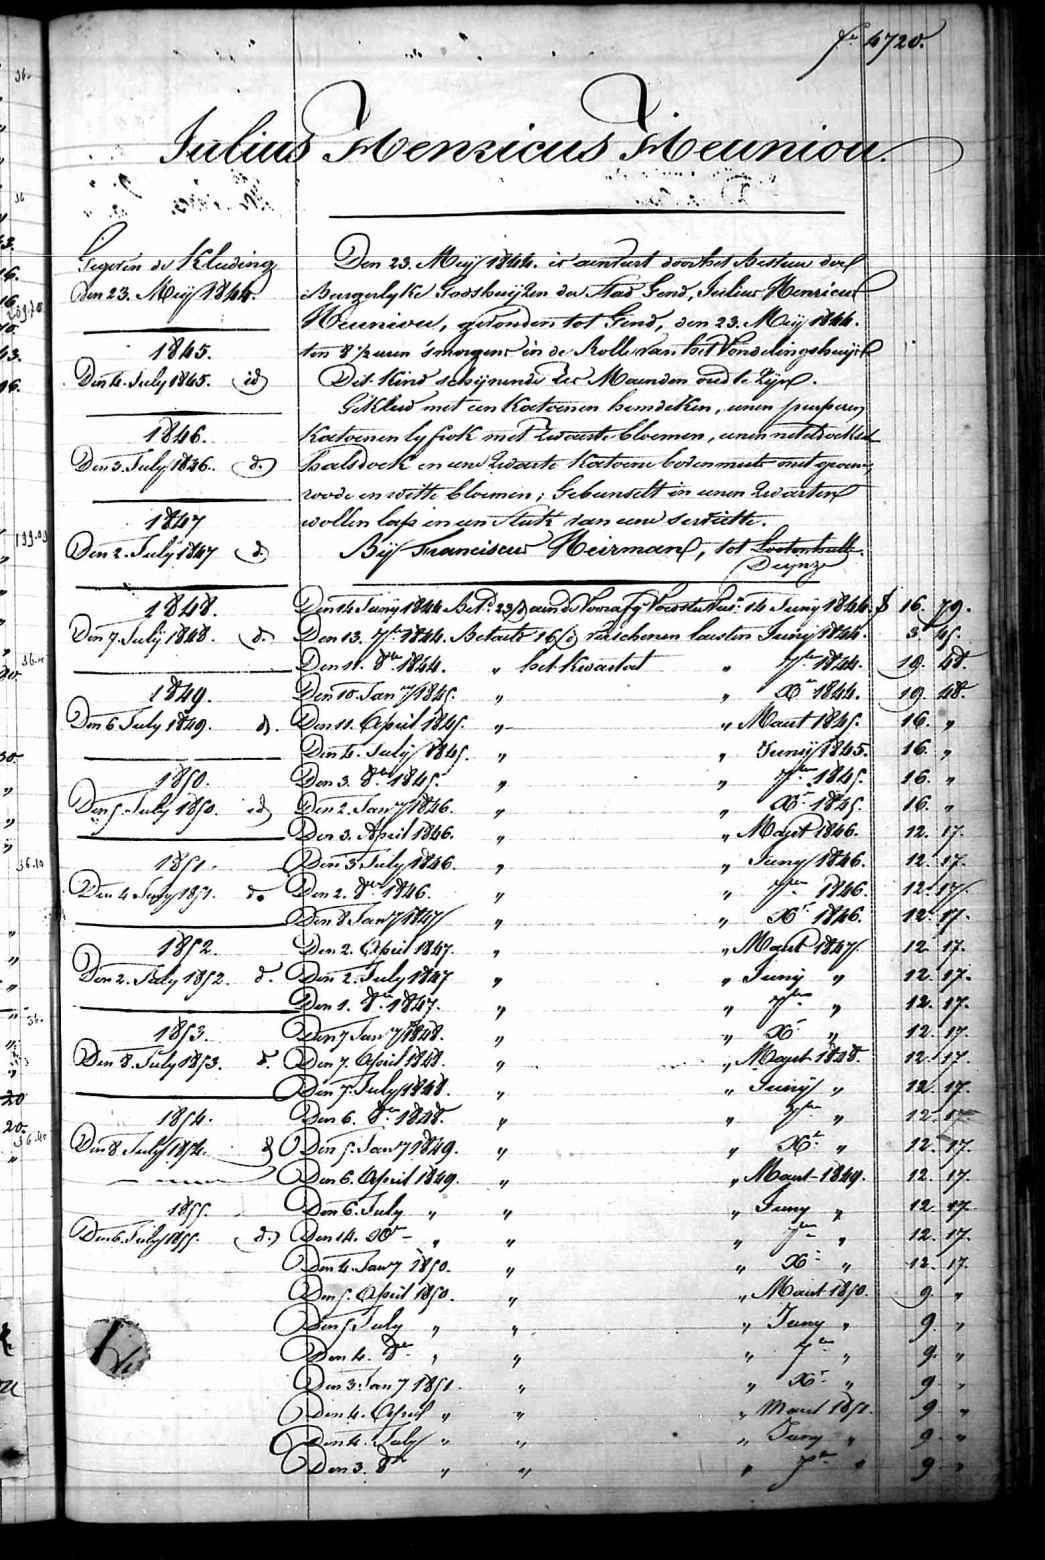 fo 4720.
Julius Henricus Heuniou.
Gegeven de Kleeding
den 23. Meij 1844.
1845.
Den 4. July 1845. id
1846.
Den 3. July 1846. d.
1847
Den 2. July 1847 d.
1848.
Den 7. July 1848. d.
1849.
Den 6 July 1849. d.
1850.
Den 5. July 1850. id
1851.
Den 4 July 1851. d.
1852.
Den 2. July 1852. d.
1853.
Den 8 July 1853. d.
1854.
Den 8 July 1854. d
1855.
Den 6. July 1855. d.
Den 23. Meij 1844. is aenveert door het Bestuur der
Burgerlyke Godshuijzen der Stad Gend, Julius Henricus
Heuniou, gevonden tot Gend, den 23. Meij 1844.
ten 8 1/2 uren 's morgens in de Rolle van het Vondelingshuijs
Dit Kind schijnende zes Maenden oud te zijn.
Gekleed met een Katoenen hemdeken, eenen purperen
Katoenen lyfrok met zwarte bloemen, eenen neteldoeken
halsdoek en eene zwarte Katoene bodenmuts met groene
roode en witte bloemen; Gebunselt in eenen zwarten
wollen lap en een stuk van eene serviette.
Bij Franciscus Heirman, tot Lootenhulle.
Deynze
Den 14 Juny 1844 14 Juny 1844. 16. 79.
Den 13. 7bre 1844. Betaeld verschenen laesten Juny 1844. 3 45.
Den 11. 8bre 1844. " het kwartael " 7bre 1844. 19. 48.
Den 10 Jany 1845. " " Xbre 1844. 19. 48.
Den 11. April 1845. " " Maert 1845. 16. "
Den 4. July 1845. " " Juny 1845. 16. "
Den 3. 8bre 1845. " " 7bre 1845. 16. "
Den 2. Jany 1846. " " Xbre 1845. 16. "
Den 3. April 1846. " " Maert 1846. 12. 17.
Den 3 July 1846. " " Juny 1846. 12. 17.
Den 2. 8bre 1846. " " 7bre 1846. 12. 17.
Den 8 Jany 1847 " " Xbre 1846. 12. 17.
Den 2. April 1847. " " Maert 1847 12. 17.
Den 2. July 1847 " " Juny " 12. 17.
Den 1. 8bre 1847. " " 7bre " 12. 17.
Den 7 Jany 1848. " " Xbre " 12. 17.
Den 7. April 1848. " " Maert 1848. 12. 17.
Den 7. July 1848. " " Juny " 12. 17.
Den 6. 8bre 1848. " " 7bre " 12. 17.
Den 5. Jany 1849. " " Xbre " 12. 17.
Den 6. April 1849. " " Maert 1849. 12. 17.
Den 6. July " " " Juny " 12. 17.
Den 14. Xbre " " " 7bre " 12. 17.
Den 4. Jany 1850. " " Xbre " 12. 17.
Den 5. April 1850. " " Maert 1850. 9. "
Den 5 July " " " Juny " 9. "
Den 4. 8bre " " " 7bre " 9. "
Den 3. Jany 1851. " " Xbre " 9. "
Den 4. April " " " Maert 1851. 9. "
Den 4. July " " " Juny " 9. "
Den 3. 8bre " " " 7bre " 9 "